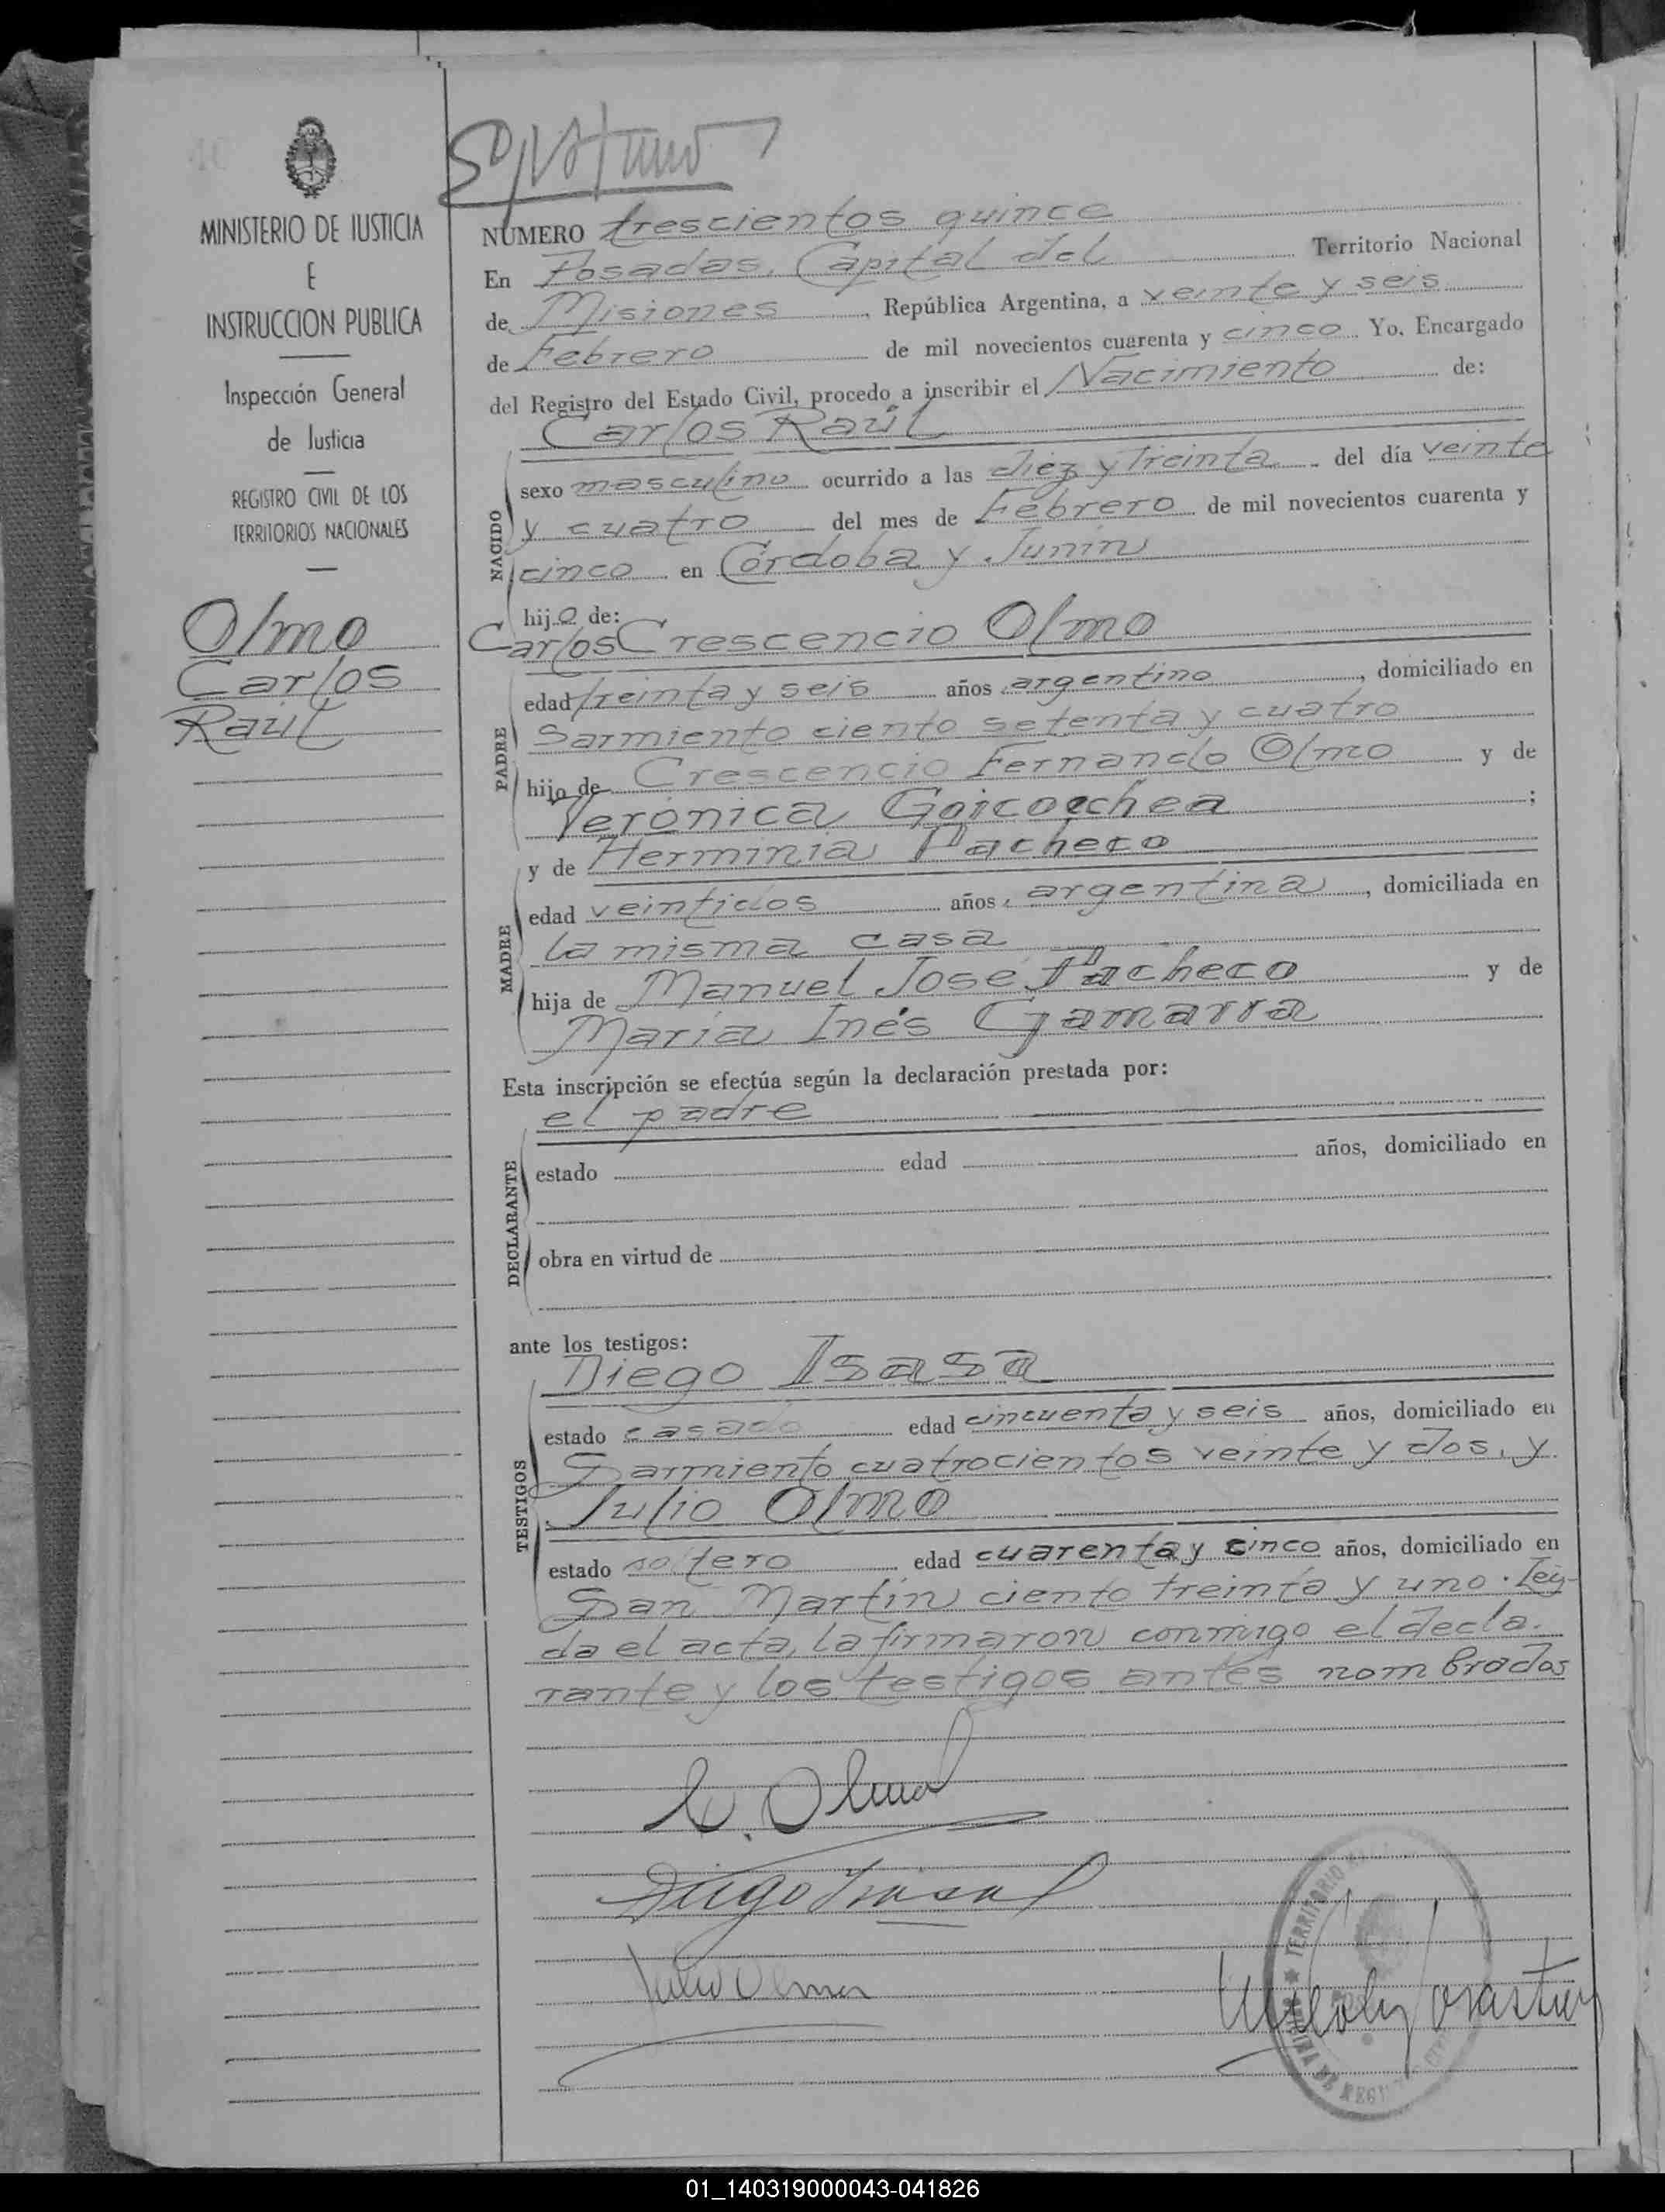 MINISTERIO DE JUSTICIA
E
INSTRUCCION PUBLICA
Inspección General
de Justicia
REGISTRO CIVIL DE LOS
TERRITORIOS NACIONALES
Olmo
Carlos
Raúl
NUMERO trescientos quince
En Posadas, Capital del Territorio Nacional
de Misiones, República Argentina, a veinte y seis
de Febrero de mil novecientos cuarenta y cinco Yo, Encargado
del Registro del Estado Civil, procedo a inscribir el Nacimiento de:
Carlos Raúl
NACIDO
sexo masculino ocurrido a las diez y treinta del día veinte
y cuatro del mes de Febrero de mil novecientos cuarenta y
cinco en Córdoba y Junín
hijo de:
Carlos Crescencio Olmo
PADRE
edad treinta y seis años, argentino, domiciliado en
Sarmiento ciento setenta y cuatro
hijo de Crescencio Fernando Olmo y de
Verónica Goicoechea;
y de Herminia Pacheco
MADRE
edad veintidos años, argentina, domiciliada en
la misma casa
hija de Manuel José Pacheco y de
María Inés Gamarra
Esta inscripción se efectúa según la declaración prestada por:
el padre
DECLARANTE
estado edad años, domiciliado en
obra en virtud de
ante los testigos:
Diego Isasa
TESTIGOS
estado casado edad cincuenta y seis años, domiciliado en
Sarmiento cuatrocientos veinte y dos, y
Julio Olmo
estado soltero edad cuarenta y cinco años, domiciliado en
San Martín ciento treinta y uno. Leí-
da el acta, la firmaron conmigo el decla-
rante y los testigos antes nombrados
C. Olmo
Diego Isasa
Julio Olmo
TERRITORIO
01_140319000043-041826